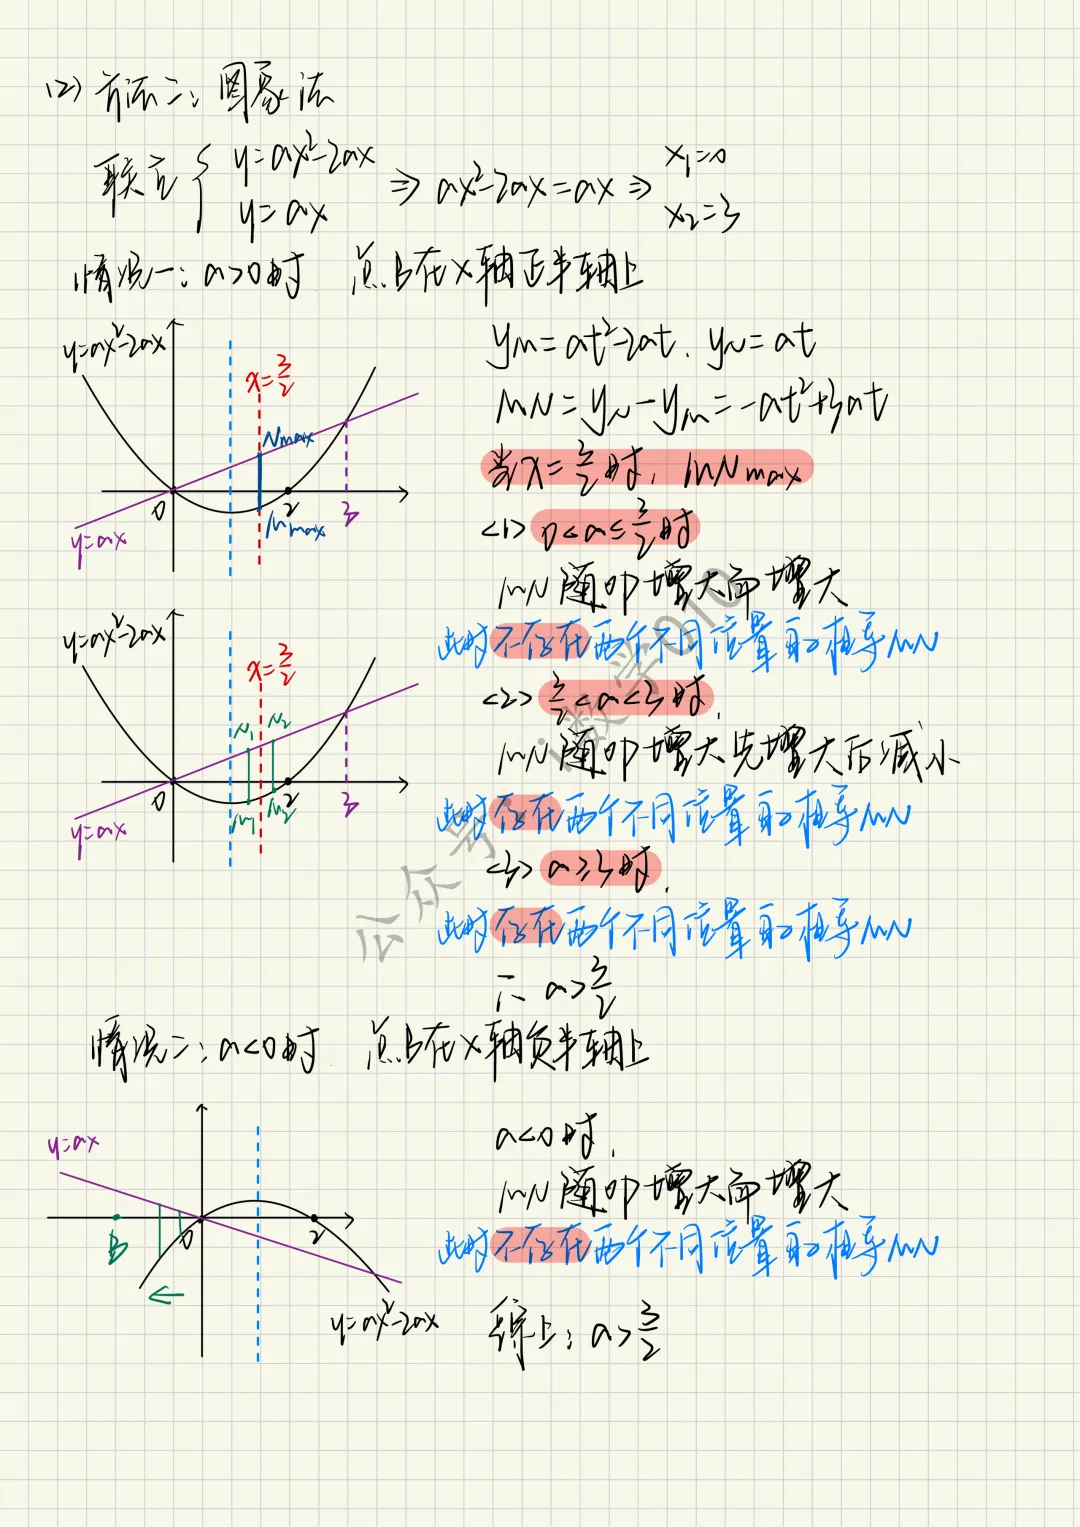 (2) 方法二：图象法
联立 { y=ax²-2ax
y=ax ⇒ ax²-2ax=ax ⇒ x₁=0
x₂=3
情况一：a>0时 点B在x轴正半轴上
y=ax²-2ax
x=3/2
Nmax
0
2
3
Mmax
y=ax
yM=at²-2at, yN=at
MN=yN-yM=-at²+3at
当x=3/2时, MNmax
<1> 0<a≤3/2时
MN随OP增大而增大
此时不存在两个不同位置取相等MN
y=ax²-2ax
x=3/2
N₁
N₂
0
2
3
M₁
M₂
y=ax
<2> 3/2<a<3时,
MN随OP增大先增大后减小
此时存在两个不同位置取相等MN
<3> a≥3时,
此时存在两个不同位置取相等MN
∴ a>3/2
情况二：a<0时 点B在x轴负半轴上
y=ax
B
0
2
y=ax²-2ax
a<0时,
MN随OP增大而增大
此时不存在两个不同位置取相等MN
综上：a>3/2
公众号：i数学010